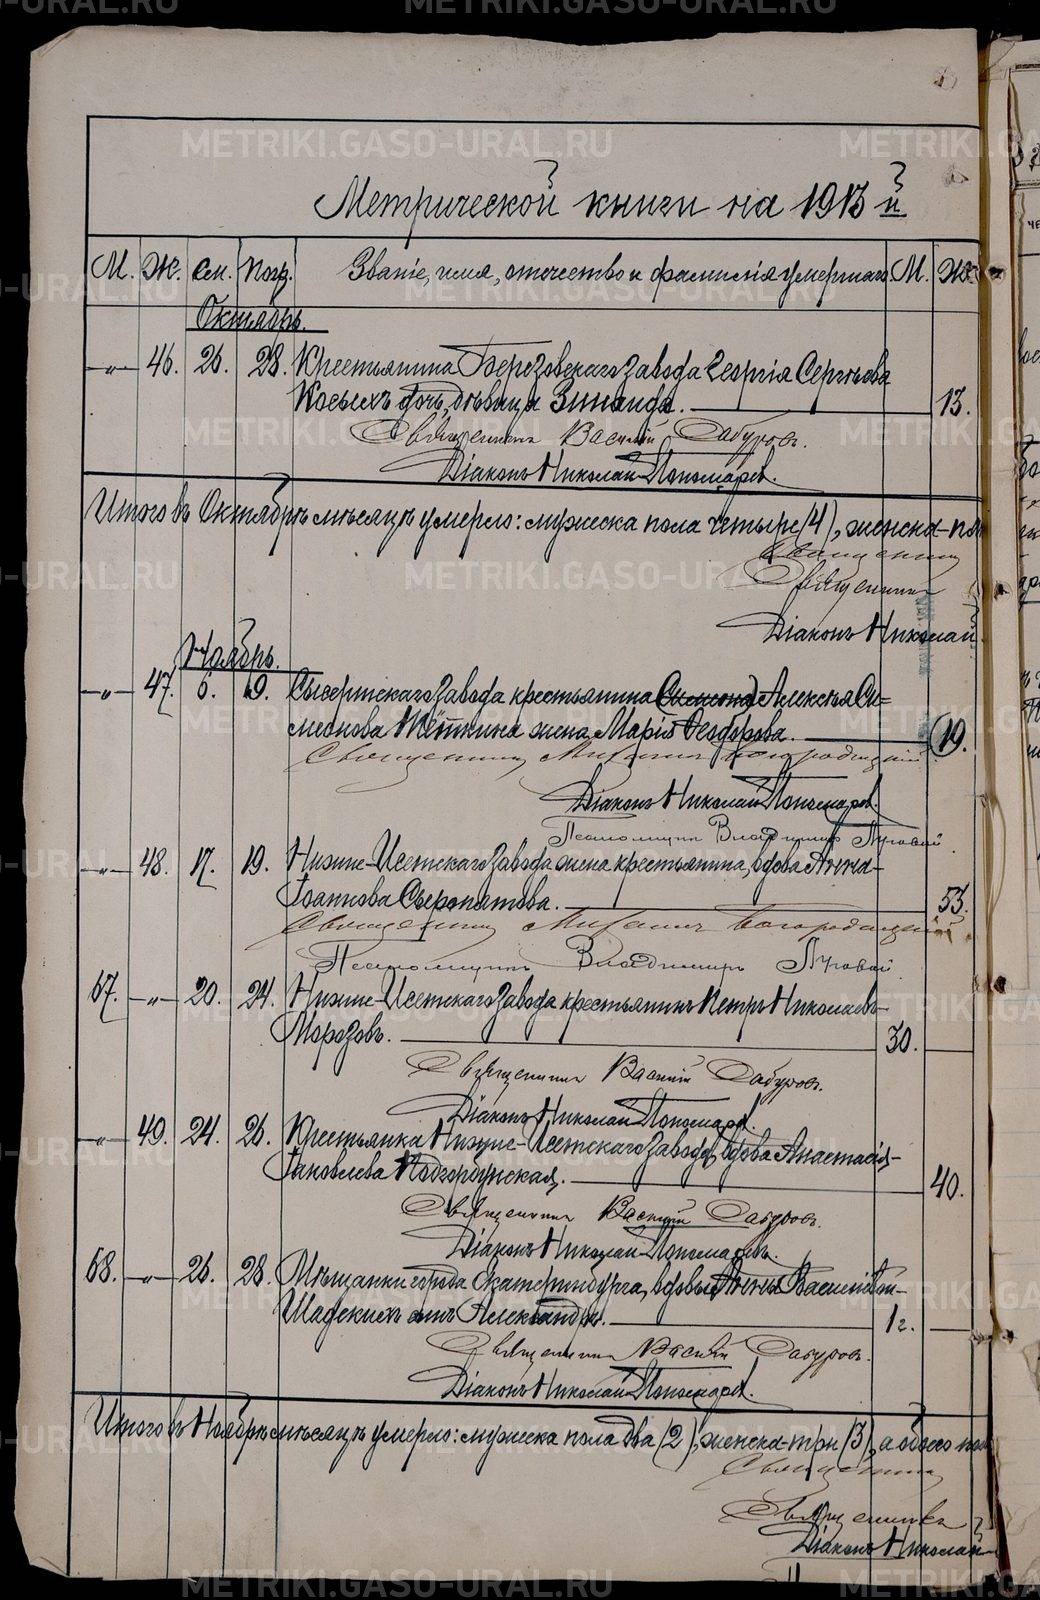 METRIKI.GASO-URAL.RU
Метрической книги на 1913 й
М. Ж. См. Погр. Званіе, имя, отчество и фамилія умершаго М. Ж.
Октябрь.
-"- 46. 26. 28. Крестьянина Березовскаго завода Георгія Сергѣева
Косыхъ дочь, дѣвица Зинаида. 13.
Священникъ Василій Сабуровъ.
Діаконъ Николай Пономаревъ.
Итого въ Октябрѣ мѣсяцѣ умерло: мужеска пола четыре (4), женска - по
Священникъ
Священникъ
Діаконъ Николай
Ноябрь.
-"- 47. 6. 19. Сысертскаго завода крестьянина Алексѣя Си=
меонова жена Марія Ѳеодорова. 19.
Священникъ Михаилъ Богородицкій
Діаконъ Николай Пономаревъ.
Псаломщикъ Владимиръ Луговой.
-"- 48. 17. 19. Нижне-Исетскаго завода жена крестьянина, вдова Анна
Іоаннова Сыропятова. 53.
Священникъ Михаилъ Богородицкій
Псаломщикъ Владимиръ Луговой.
67. -"- 20. 24. Нижне-Исетскаго завода крестьянинъ Петръ Николаевъ
Морозовъ. 30.
Священникъ Василій Сабуровъ.
Діаконъ Николай Пономаревъ.
-"- 49. 24. 26. Крестьянка Нижне-Исетскаго завода, вдова Анастасія
Іаковлева 40.
Священникъ Василій Сабуровъ.
Діаконъ Николай Пономаревъ.
68. -"- 26. 28. Мѣщанки города Екатеринбурга, вдовы Анны
Шадскихъ сынъ Александръ. 1 г.
Священникъ Василій Сабуровъ.
Діаконъ Николай Пономаревъ.
Итого въ Ноябрѣ мѣсяцѣ умерло: мужеска пола два (2), женска - три (3), а обоего пол
Священникъ
Священникъ
Діаконъ Николай
METRIKI.GASO-URAL.RU